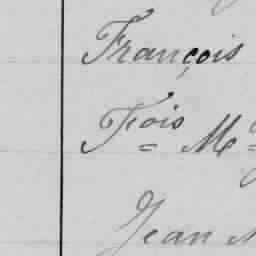 François
Fçois M
Jean